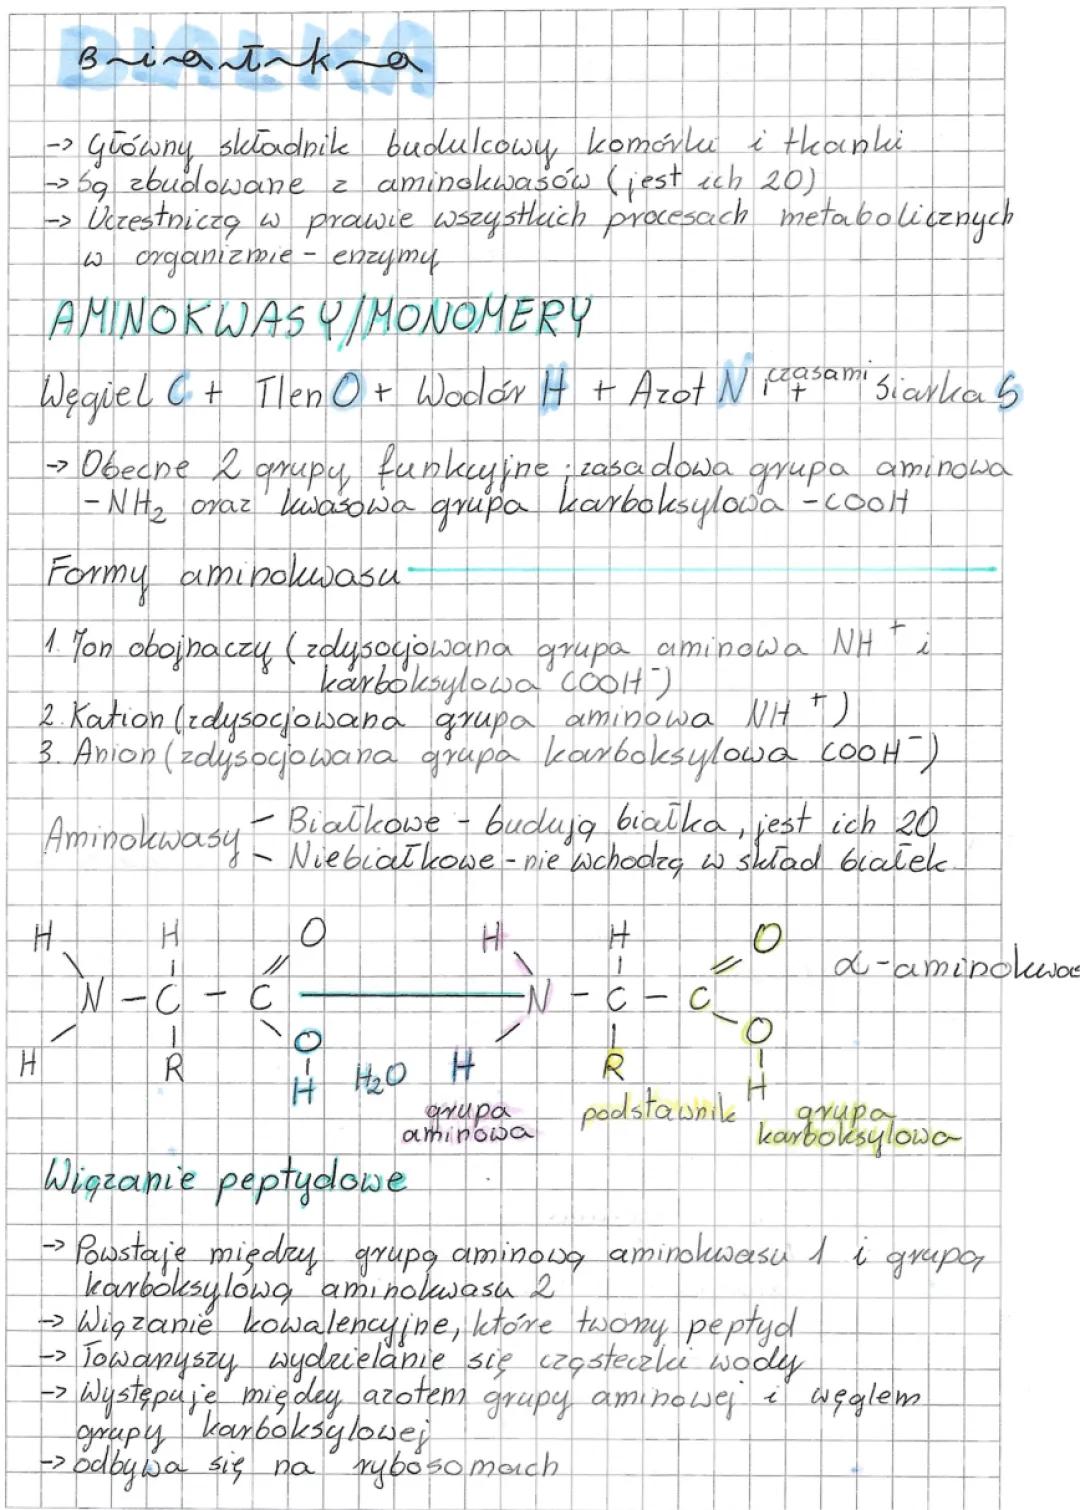 Białka
-> Główny składnik budulcowy komórki i tkanki
-> Są zbudowane z aminokwasów (jest ich 20)
-> Uczestniczą w prawie wszystkich procesach metabolicznych
w organizmie - enzymy
AMINOKWASY/MONOMERY
Węgiel C + Tlen O + Wodór H + Azot N i czasami + Siarka S
-> Obecne 2 grupy funkcyjne: zasadowa grupa aminowa
-NH₂ oraz kwasowa grupa karboksylowa -COOH
Formy aminokwasu
1. Jon obojnaczy (zdysocjowana grupa aminowa NH⁺ i
karboksylowa COOH⁻)
2. Kation (zdysocjowana grupa aminowa NH⁺)
3. Anion (zdysocjowana grupa karboksylowa COOH⁻)
Aminokwasy - Białkowe - budują białka, jest ich 20
- Niebiałkowe - nie wchodzą w skład białek
H H O H H O
α-aminokwas
N - C - C N - C - C
H R O H₂O H R O
H H
grupa aminowa
podstawnik
grupa karboksylowa
Wiązanie peptydowe
-> Powstaje między grupą aminową aminokwasu 1 i grupą
karboksylową aminokwasu 2
-> Wiązanie kowalencyjne, które tworzy peptyd
-> Towarzyszy wydzielanie się cząsteczki wody
-> Występuje między azotem grupy aminowej i węglem
grupy karboksylowej
-> odbywa się na rybosomach